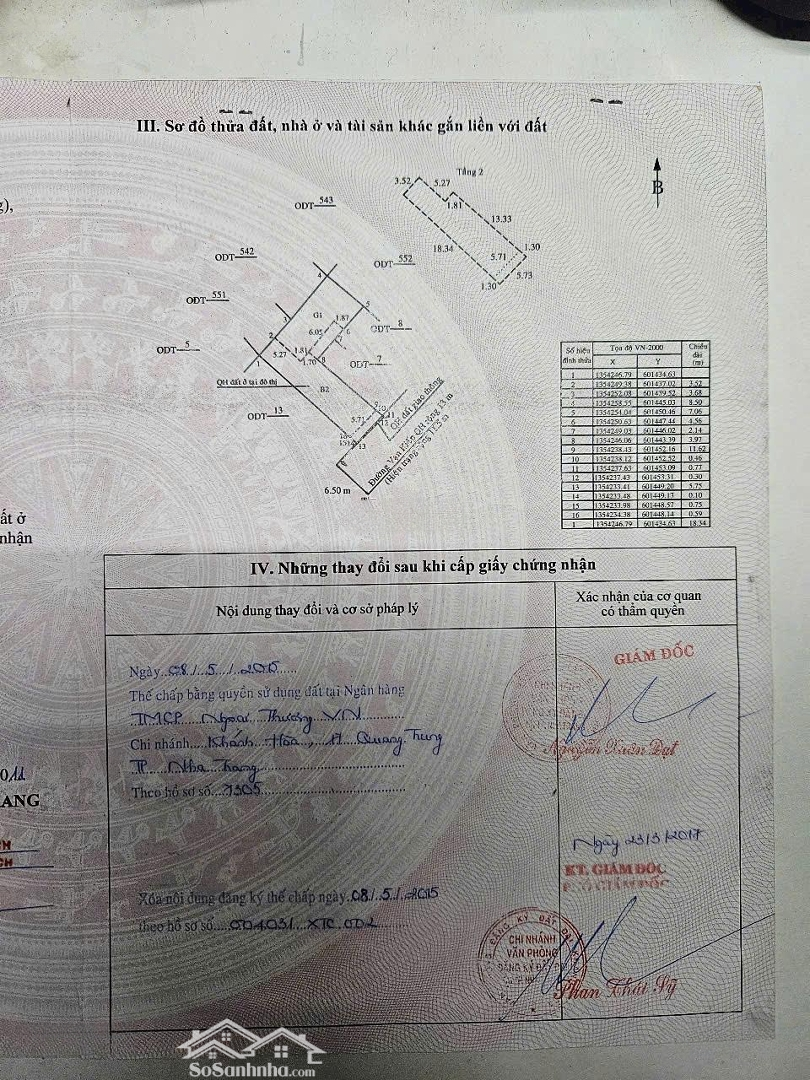 III. Sơ đồ thửa đất, nhà ở và tài sản khác gắn liền với đất
g),
B
Tầng 2
3.52
5.27
1.81
13.33
18.34
5.71
1.30
1.30
5.73
ODT 543
ODT 542
ODT 552
ODT 551
ODT 8
ODT 5
ODT 7
ODT 13
4
5
3
2
1
G1
1.87
6
6.05
7
1.81
8
5.27
1.70
B2
QH đất ở tại đô thị
5.71
9
10
11
12
13
QH đất giao thông
Đường Vạn Kiếp QH rộng 13 m
(Hiện trạng rộng 11.5 m)
6.50 m
Số hiệu đỉnh thửa
Tọa độ VN-2000
Chiều dài (m)
X Y
1 1354246.79 601434.63
2 1354249.38 601437.02 3.52
3 1354252.08 601439.52 3.68
4 1354258.55 601445.03 8.50
5 1354251.04 601450.46 7.06
6 1354250.63 601447.44 4.56
7 1354249.03 601446.02 2.14
8 1354246.06 601443.39 3.97
9 1354238.43 601452.16 11.62
10 1354238.12 601452.52 0.46
11 1354237.63 601453.09 0.77
12 1354237.43 601453.31 0.30
13 1354233.41 601449.20 5.75
14 1354233.48 601449.13 0.10
15 1354233.98 601448.57 0.75
16 1354234.38 601448.14 0.59
1 1354246.79 601434.63 18.34
ất ở
nhận
IV. Những thay đổi sau khi cấp giấy chứng nhận
Nội dung thay đổi và cơ sở pháp lý
Xác nhận của cơ quan
có thẩm quyền
Ngày 08/5/2015
GIÁM ĐỐC
Thế chấp bằng quyền sử dụng đất tại Ngân hàng
TMCP Ngoại Thương VN
Chi nhánh Khánh Hòa, 17 Quang Trung
Nguyễn Xuân Đạt
TP Nha Trang
Theo hồ sơ số 1305
011
ANG
CH
CH
Ngày 23/3/2017
KT. GIÁM ĐỐC
P. GIÁM ĐỐC
Xóa nội dung đăng ký thế chấp ngày 08/5/2015
theo hồ sơ số 004031 XTC 002
ĐĂNG KÝ ĐẤT ĐAI
CHI NHÁNH
VĂN PHÒNG
ĐĂNG KÝ ĐẤT ĐAI
Phan Thát Sỹ
SoSanhnha.com